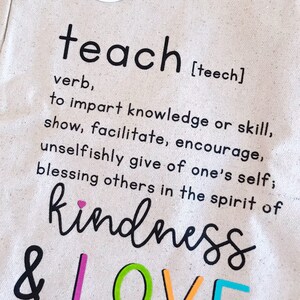 teach [teech]
verb,
to impart knowledge or skill,
show, facilitate, encourage,
unselfishly give of one's self;
blessing others in the spirit of
kindness
& LOVE